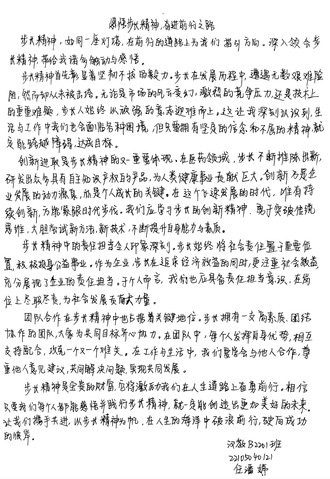 感悟步长精神,奋进前行之路
步长精神,如同一座灯塔,在前行的道路上为我们指引方向。深入领会步
长精神,带给我诸多触动与感悟。
步长精神首先彰显着坚韧不拔的毅力。步长在发展历程中,遭遇无数艰难险
阻,然而却从未被击垮。无论是市场的风云变幻,激烈的竞争压力,还是技术上
的重重难题,步长人始终以顽强的意志迎难而上。这让我深刻认识到,生
活与工作中我们也会面临各种困境,但只要拥有坚定的信念和不屈的精神,就
定能够破障碍,达成目标。
创新进取是步长精神的又一重要体现。在医药领域,步长不断推陈出新,
研发出众多具有自主知识产权的产品,为人类健康事业贡献巨大。创新不是企
业发展的动力源泉,而是个人成长的关键。在这个飞速发展的时代,唯有持
续创新,方能紧跟时代步伐。我们应学习步长的创新精神,勇于突破传统
思维,大胆尝试新方法、新技术,不断提升自身能力与素质。
步长精神中的责任担当令人印象深刻。步长始终将社会责任置于重要位
置,积极投身公益事业。作为企业,步长在追求经济效益的同时,更注重社会效益,
充分展现了企业的责任担当。于个人而言,我们也应具备责任担当意识,在岗
位上尽职尽责,为社会发展贡献力量。
团队合作在步长精神中也占据着关键地位。步长拥有一支高素质、团结
协作的团队,大家为共同目标齐心协力。在团队中,每个人发挥自身优势,相互
支持配合,攻克一个又一个难关。在工作与生活中,我们要学会与他人合作,尊
重他人意见建议,共同解决问题,实现共同发展。
步长精神是宝贵的财富,它将激励我们在人生道路上奋勇前行。相信
只要我们每个人都能感悟并践行步长精神,就一定能创造出更加美好的未来。
让我们携手共进,以步长精神为帆,在人生的海洋中破浪前行,驶向成功
的彼岸。
汉教B2201班
22105040121
任潘婷